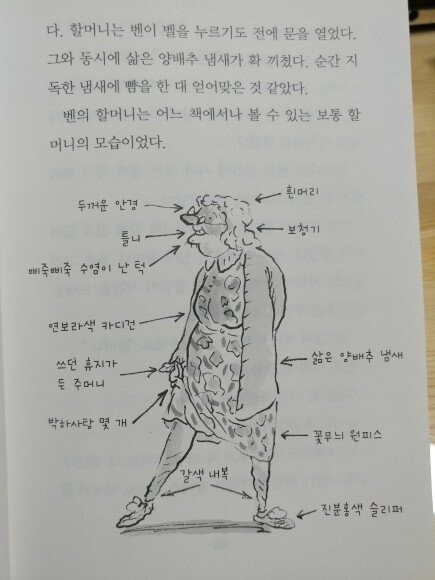 다. 할머니는 벤이 벨을 누르기도 전에 문을 열었다.
그와 동시에 삶은 양배추 냄새가 확 끼쳤다. 순간 지
독한 냄새에 뺨을 한 대 얻어맞은 것 같았다.
벤의 할머니는 어느 책에서나 볼 수 있는 보통 할
머니의 모습이었다.
두꺼운 안경
흰머리
틀니
보청기
삐죽삐죽 수염이 난 턱
연보라색 카디건
쓰던 휴지가
든 주머니
삶은 양배추 냄새
박하사탕 몇 개
꽃무늬 원피스
갈색 내복
진분홍색 슬리퍼